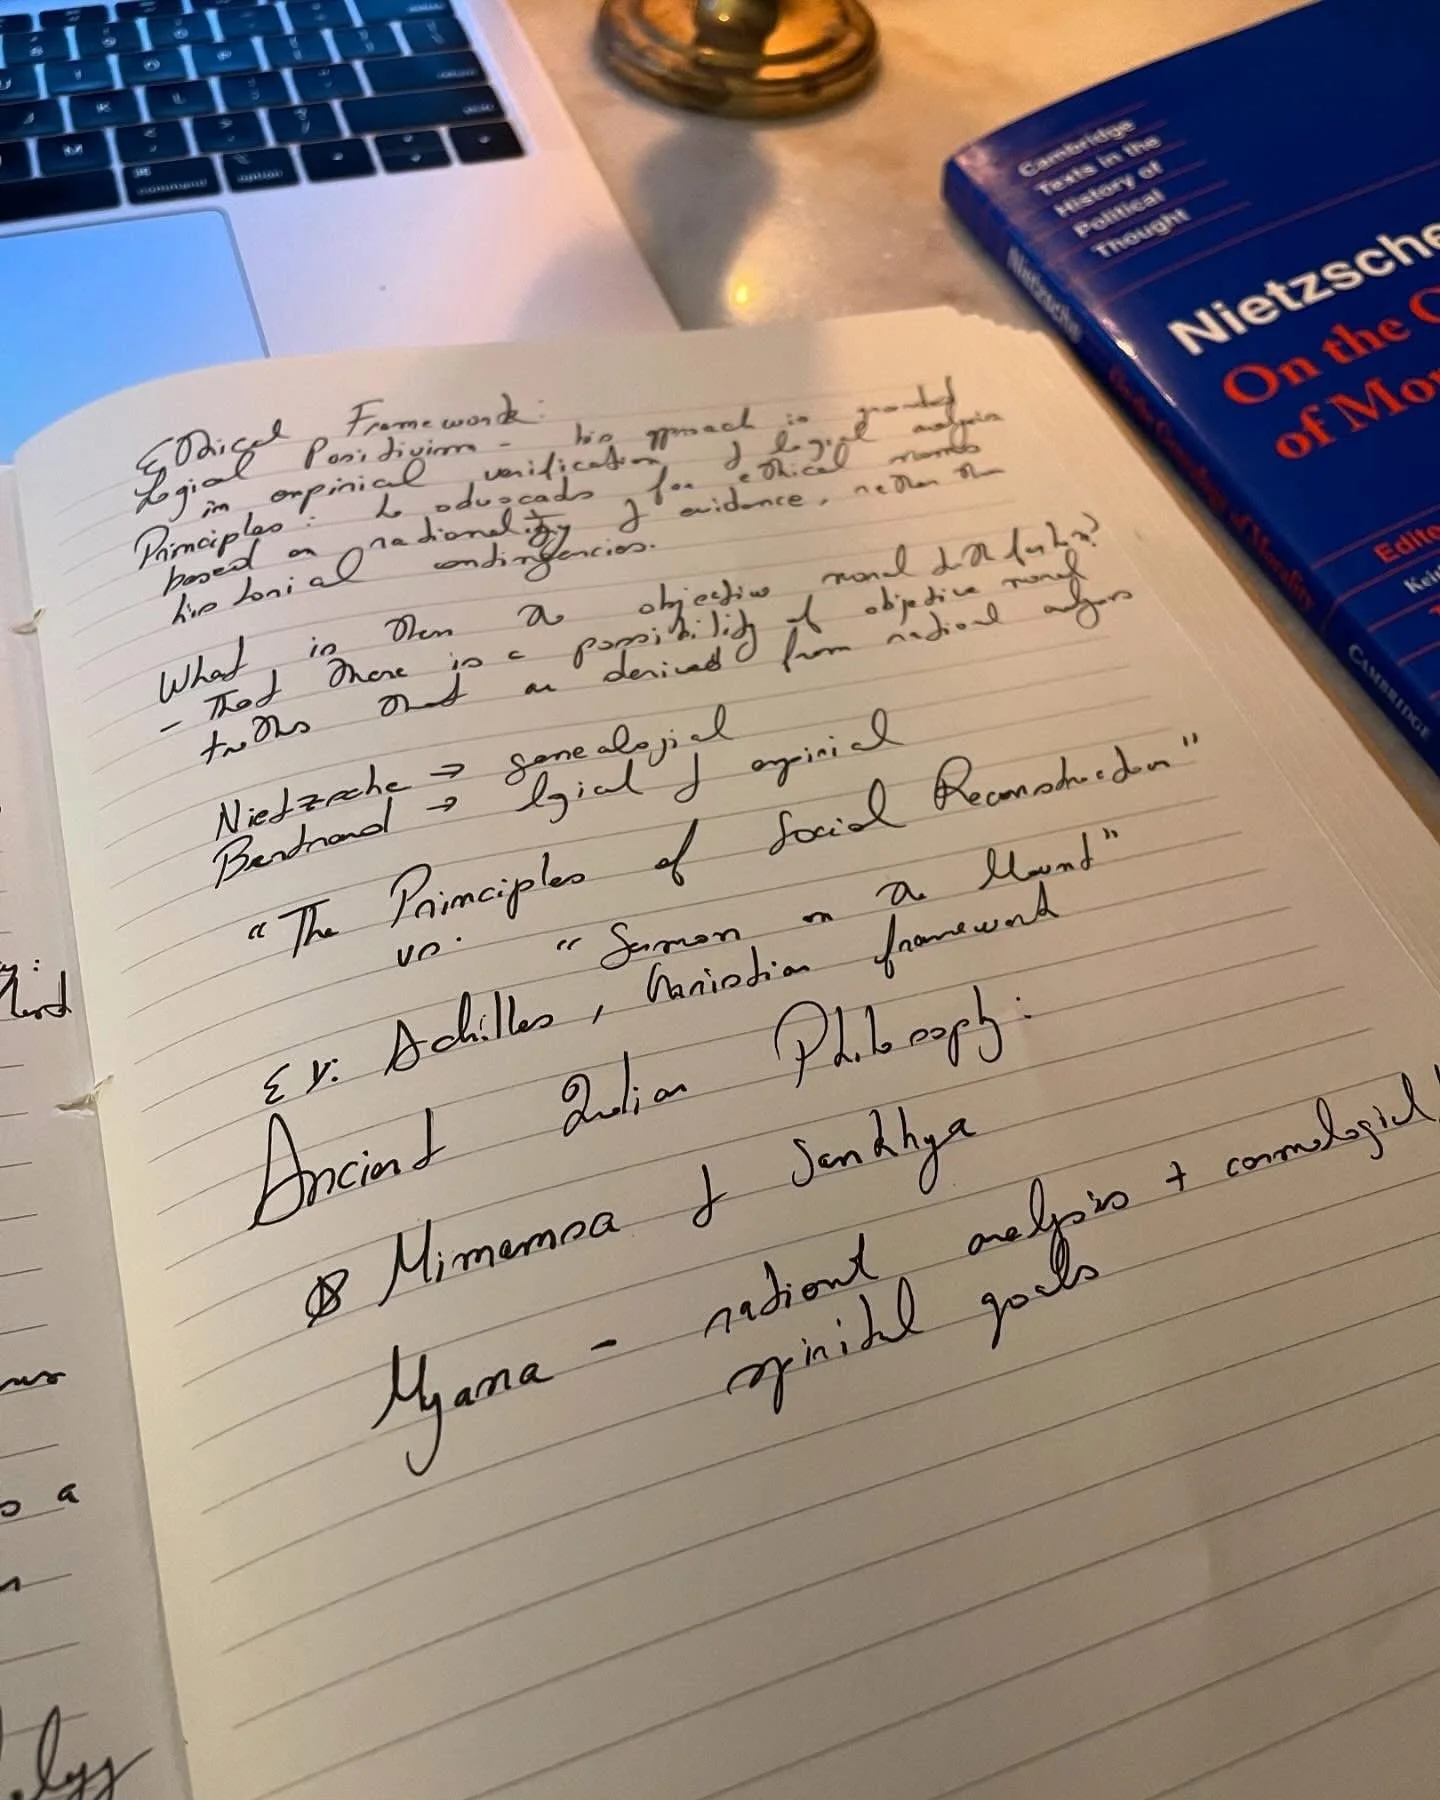 command
option
Cambridge
Texts in the
History of
Political
Thought
Nietzsche
On the
of Mor
Edito
Keit
Nietzsche
On the Genealogy of Morality
CAMBRIDGE
Ethical Framework:
Logical Positivism - his approach is grounded
in empirical verification & logical analysis
Principles: he advocads for ethical norms
based on rationality & evidence, rether than
historical contingencies.
What is then the objective moral truth for him?
- That there is a possibility of objective moral
truths that are derived from rational analysis
Nietzsche → genealogical
Bertrand → lgical & empirical
"The Principles of Social Reconstruction"
vs. "Sermon on the Mount"
Ex: Achilles, Christian framework
Ancient Indian Philosophy:
Mimamsa & Sankhya
Nyana - rational analysis + cosmological
spirital goals
s a